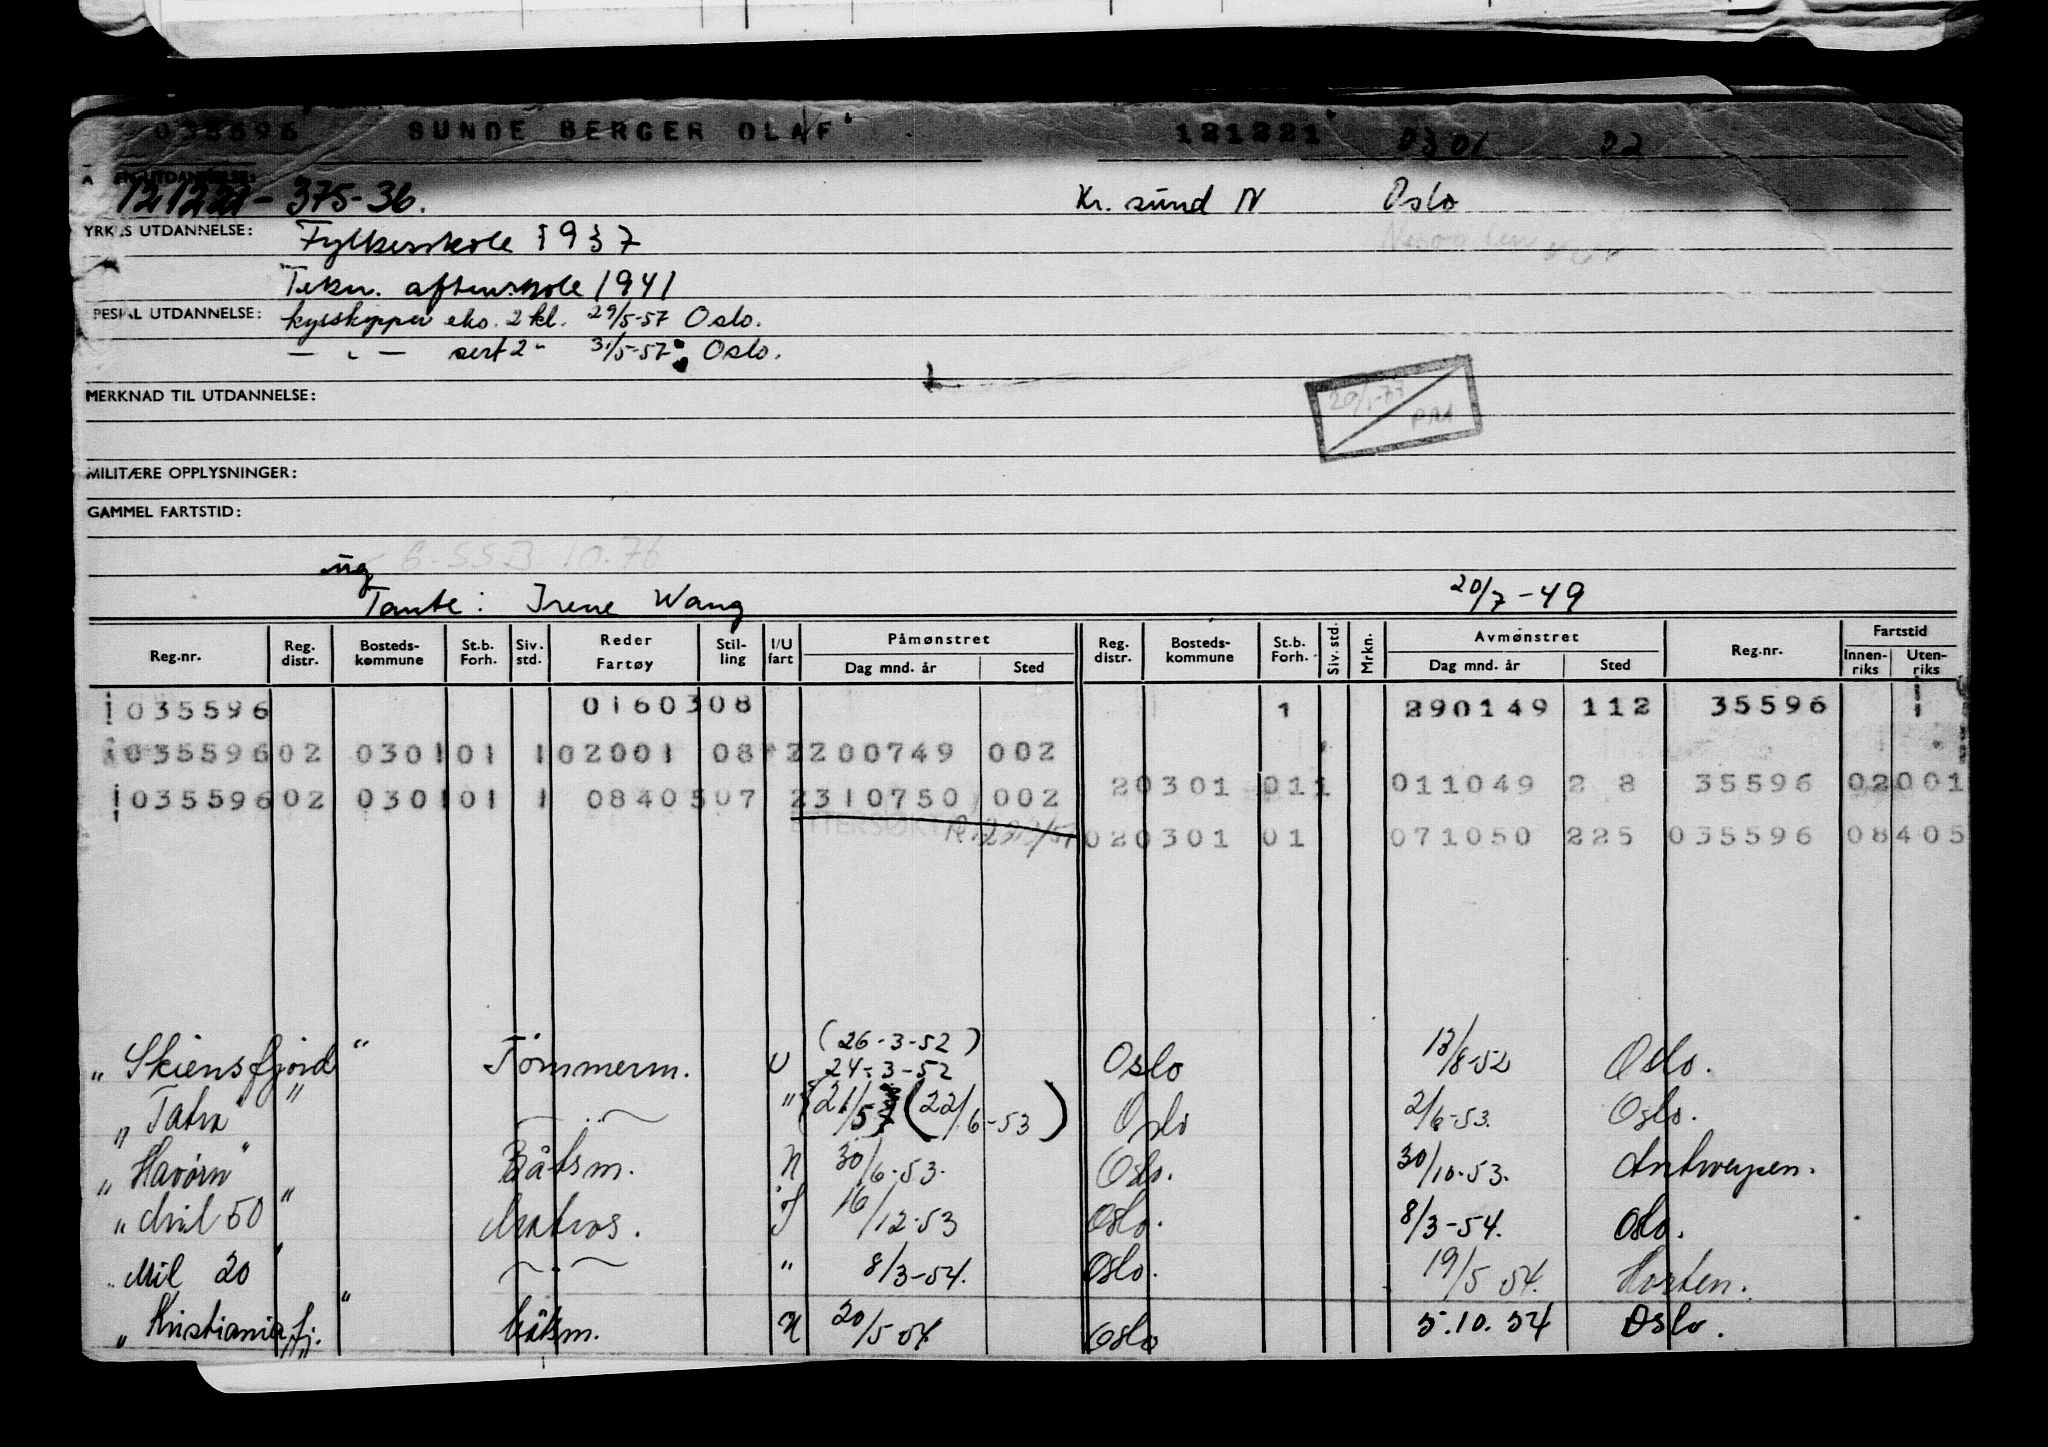 035596 SUNDE BERGER OLAF 121221 0301 02
UTDANNELSE:
121221-375-36. Kr. sund N Oslo
YRKES UTDANNELSE: Fylkesskole 1937
Tekn. aftenskole 1941
PESIAL UTDANNELSE: kystskipper eks. 2 kl. 29/5-57 Oslo.
— " — sert 2 - 31/5-57 Oslo.
MERKNAD TIL UTDANNELSE:
20/1-77 PM
MILITÆRE OPPLYSNINGER:
GAMMEL FARTSTID:
6-SSB 10.76
ug
Tante: Irene Wang 20/7-49
Reg.nr. Reg. distr. Bosteds-kommune St.b. Forh. Siv. std. Reder Fartøy Stil-ling I/U fart Påmønstret Dag mnd. år Sted Reg. distr. Bosteds-kommune St.b. Forh. Siv. std. Mrkn. Avmønstret Dag mnd. år Sted Reg.nr. Fartstid Innen-riks Uten-riks
035596 0160308 1 290149 112 35596
035596 02 0301 01 1 02001 08 2 200749 002
20301 011 011049 2 8 35596 02001
035596 02 0301 01 1 08405 07 2 310750 002
020301 01 071050 225 035596 08405
(26-3-52)
"Skiensfjord" Tømmerm. U 24-3-52 Oslo 13/8-52 Oslo.
"Tatra" — " — " 21/5 (22/6-53) Oslo 2/6-53. Oslo.
"Havørn" Båtsm. N 30/6-53. Oslo. 30/10-53. Antwerpen.
"Mil 50" Matros. J 16/12-53 Oslo. 8/3-54. Oslo.
"Mil 20" — " — " 8/3-54. Oslo. 19/5 54. Horten.
"Kristianiafj." båtsm. U 20/5 54 Oslo 5.10.54 Oslo.